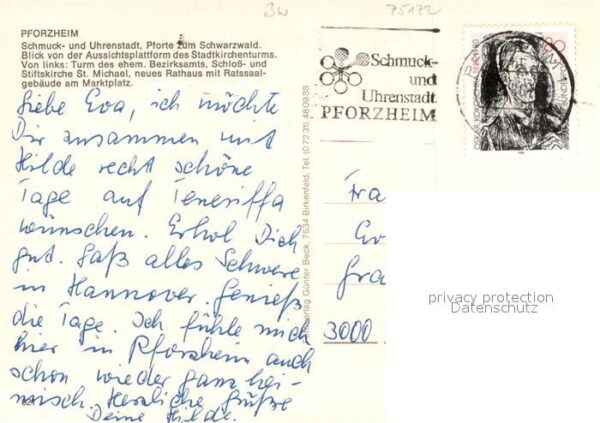 BW 75172
PFORZHEIM
Schmuck- und Uhrenstadt, Pforte zum Schwarzwald.
Blick von der Aussichtsplattform des Stadtkirchenturms.
Von links: Turm des ehem. Bezirksamts, Schloß- und
Stiftskirche St. Michael, neues Rathaus mit Ratssaal-
gebäude am Marktplatz.
Liebe Eva, ich möchte
Dir zusammen mit
Hilde recht schöne
Tage auf Teneriffa
wünschen. Erhol Dich
gut. Laß alles Schwere
in Hannover. Genieß
die Tage. Ich fühle mich
hier in Pforzheim auch
schon wieder ganz hei-
misch. Herzliche Grüße
Deine Hilde.
821
Günter Beck, 7534 Birkenfeld, Tel. (07231) 480938
Schmuck-
und
Uhrenstadt
PFORZHEIM
OSKAR KOKOSCHKA
Fra
Gra
3000
privacy protection
Datenschutz